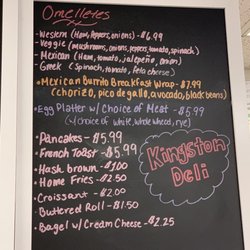 Omelletes
- Western (Ham, peppers, onions) - $6.99
- Veggie (mushrooms, onions, peppers, tomato, spinach)
- Mexican (Ham, tomato, jalapeño, onion)
- Greek (spinach, tomato, feta cheese)
• Mexican Burrito Breakfast Wrap - $7.99
(chorizo, pico de gallo, avocado, black beans)
• Egg Platter w/ Choice of Meat - $5.99
w/ choice of white, whole wheat, rye)
• Pancakes - $5.99
• French Toast - $5.99
• Hash brown - $1.00
• Home Fries - $2.50
• Croissant - $2.00
• Buttered Roll - $1.50
• Bagel w/ Cream Cheese - $2.25
Kingston
Deli